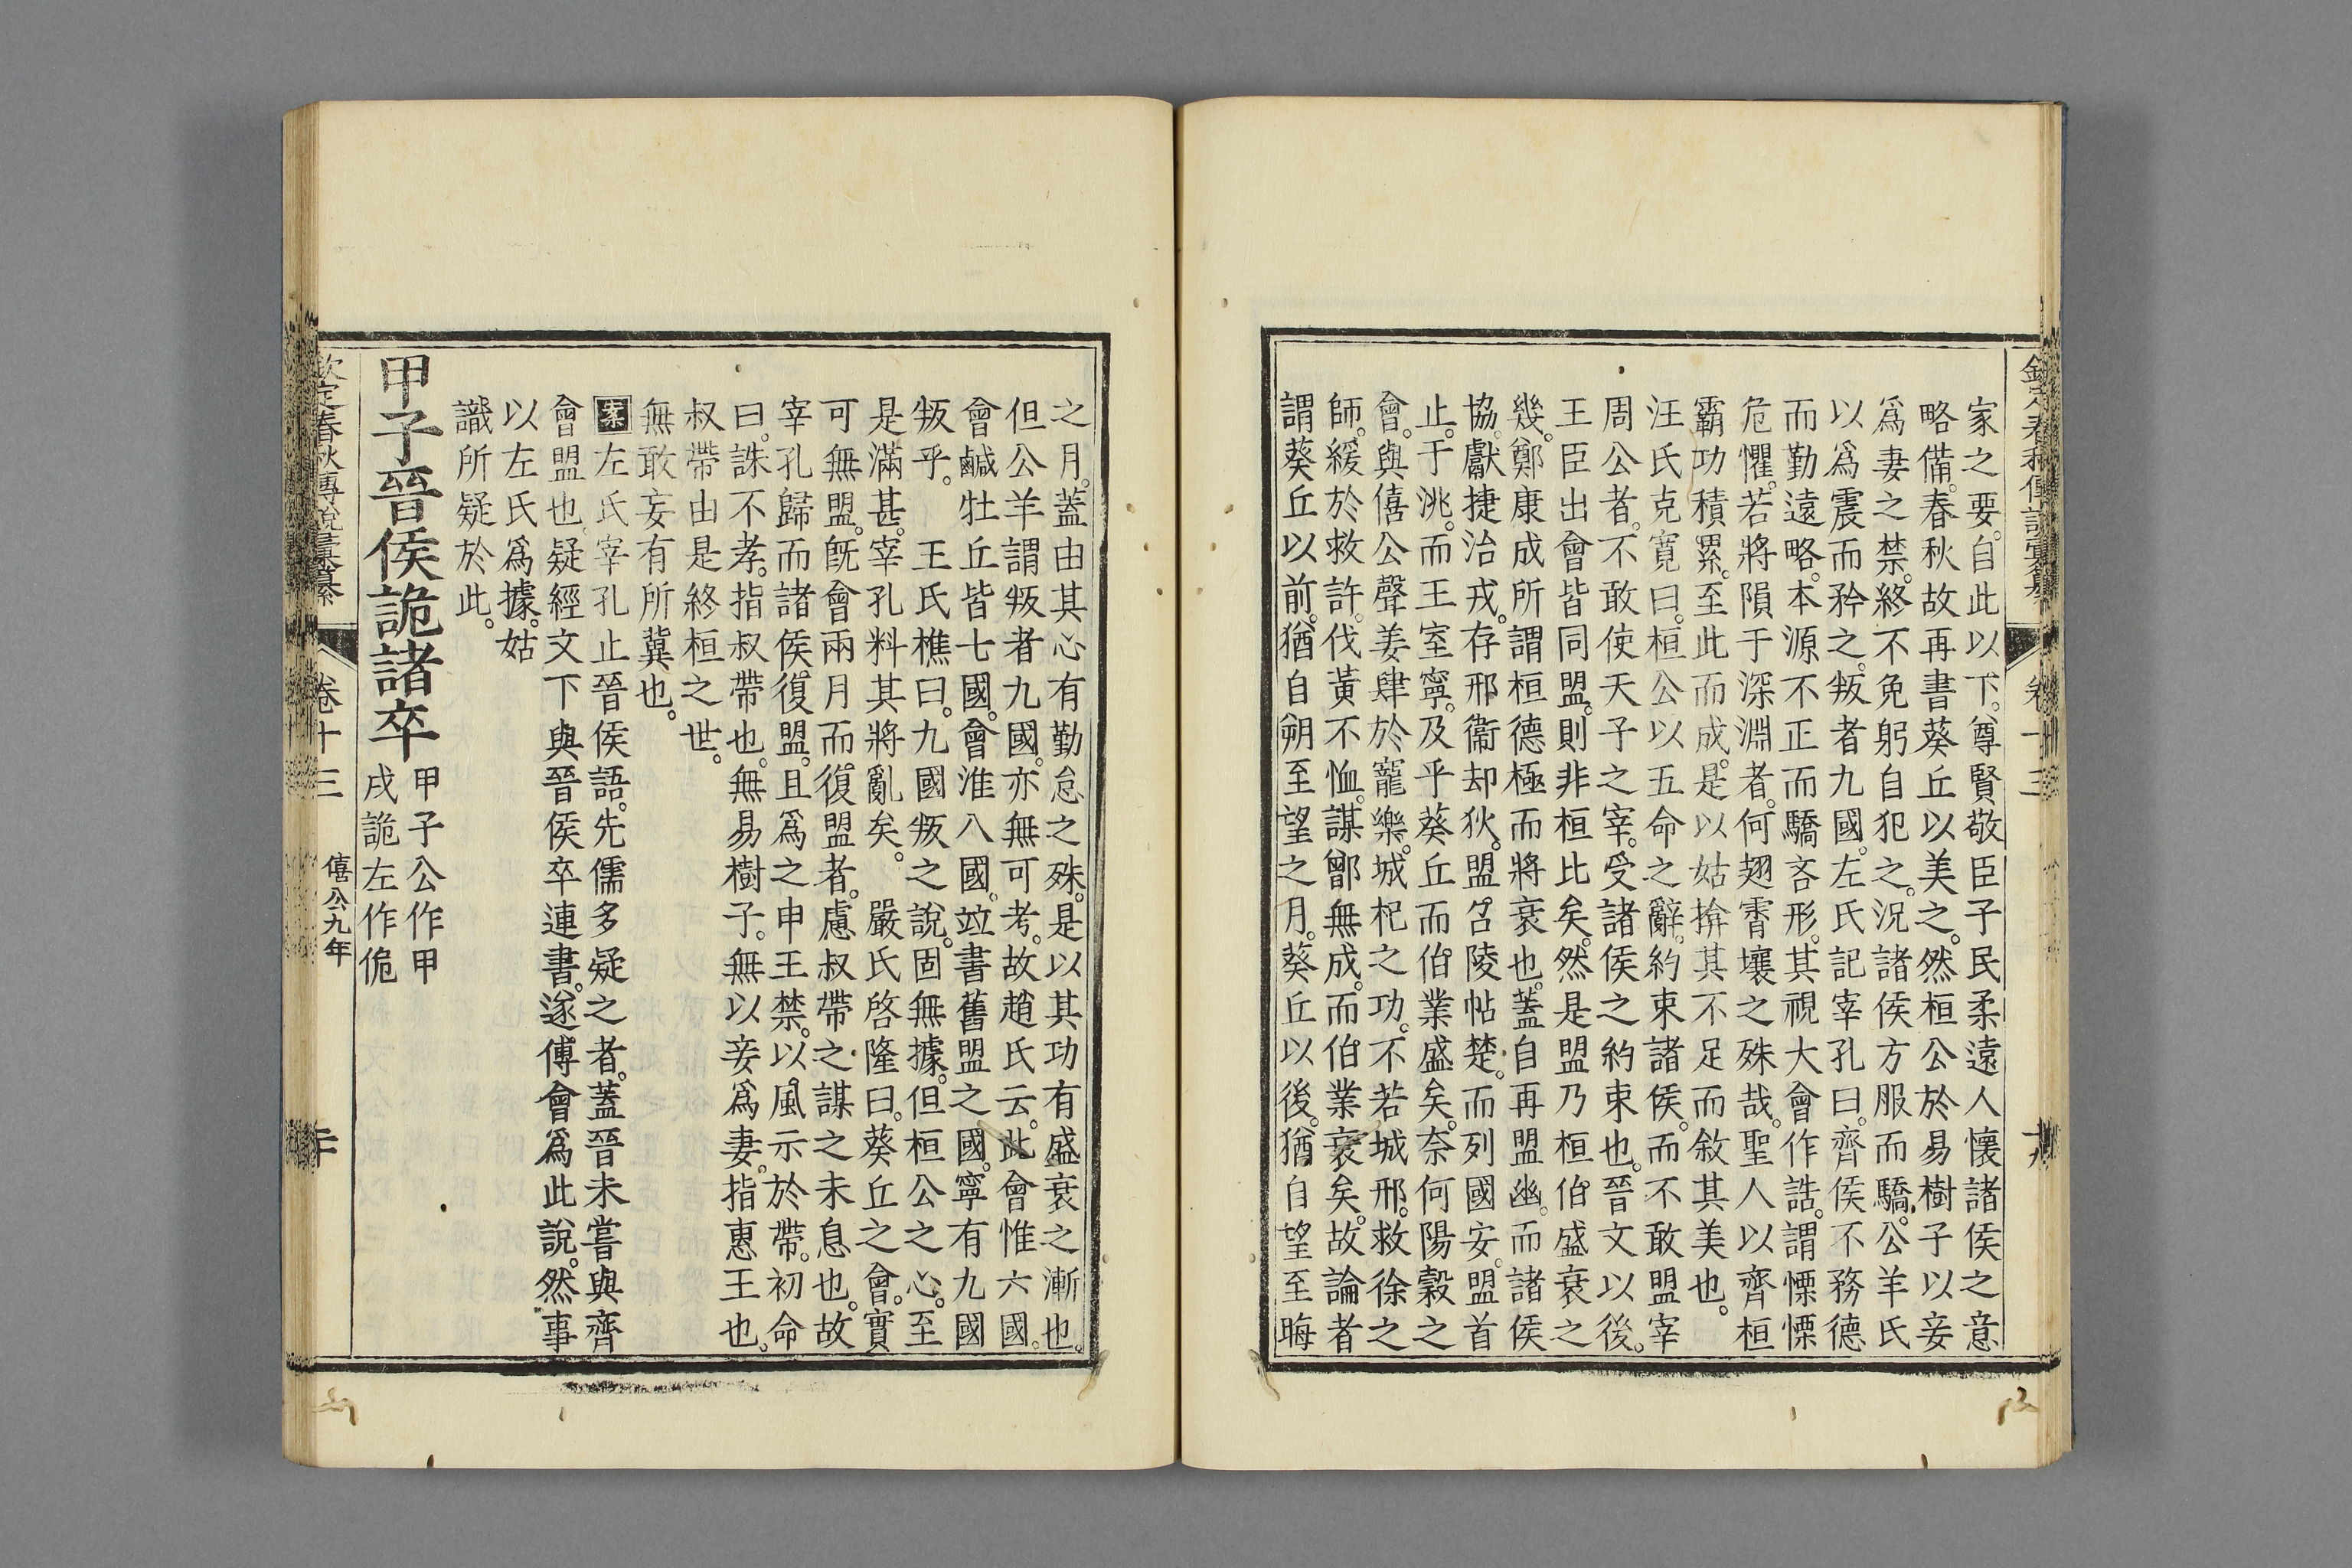 欽定春秋傳說彙纂
卷十三
家之要。自此以下。尊賢敬臣子民柔遠人懷諸侯之意
略備。春秋故再書葵丘以美之。然桓公於易樹子以妾
爲妻之禁。終不免躬自犯之。況諸侯方服而驕。公羊氏
以爲震而矜之。叛者九國。左氏記宰孔曰。齊侯不務德
而勤遠略。本源不正而驕吝形。其視大會作誥。謂慄慄
危懼。若將隕于深淵者。何翅霄壤之殊哉。聖人以齊桓
霸功積累。至此而成。是以姑揜其不足而敘其美也。
汪氏克寬曰。桓公以五命之辭。約束諸侯。而不敢盟宰
周公者。不敢使天子之宰。受諸侯之約束也。晉文以後。
王臣出會皆同盟。則非桓比矣。然是盟乃桓伯盛衰之
幾。鄭康成所謂桓德極而將衰也。蓋自再盟幽。而諸侯
協。獻捷治戎。存邢衞却狄。盟召陵帖楚。而列國安。盟首
止。于洮。而王室寧。及乎葵丘而伯業盛矣。奈何陽穀之
會。與僖公聲姜肆於寵樂。城杞之功。不若城邢。救徐之
師。緩於救許。伐黃不恤。謀鄫無成。而伯業衰矣。故論者
謂葵丘以前。猶自朔至望之月。葵丘以後。猶自望至晦
之月。蓋由其心有勤怠之殊。是以其功有盛衰之漸也。
但公羊謂叛者九國。亦無可考。故趙氏云。此會惟六國。
會鹹牡丘皆七國。會淮八國。竝書舊盟之國。寧有九國
叛乎。 王氏樵曰。九國叛之說。固無據。但桓公之心。至
是滿甚。宰孔料其將亂矣。 嚴氏啓隆曰。葵丘之會。實
可無盟。旣會兩月而。復盟者。慮叔帶之謀之未息也。故
宰孔歸而諸侯。復盟。且爲之申王禁。以風示於帶。初命
曰。誅不孝。指叔帶也。無易樹子。無以妾爲妻。指惠王也。
叔帶由是終桓之世。
無敢妄有所冀也。
案左氏宰孔止晉侯語。先儒多疑之者。蓋晉未嘗與齊
會盟也。疑經文下與晉侯卒連書。遂傅會爲此說。然事
以左氏爲據。姑
識所疑於此。
甲子晉侯詭諸卒
甲子公作甲
戌詭左作佹
欽定春秋傳說彙纂
卷十三
僖公九年